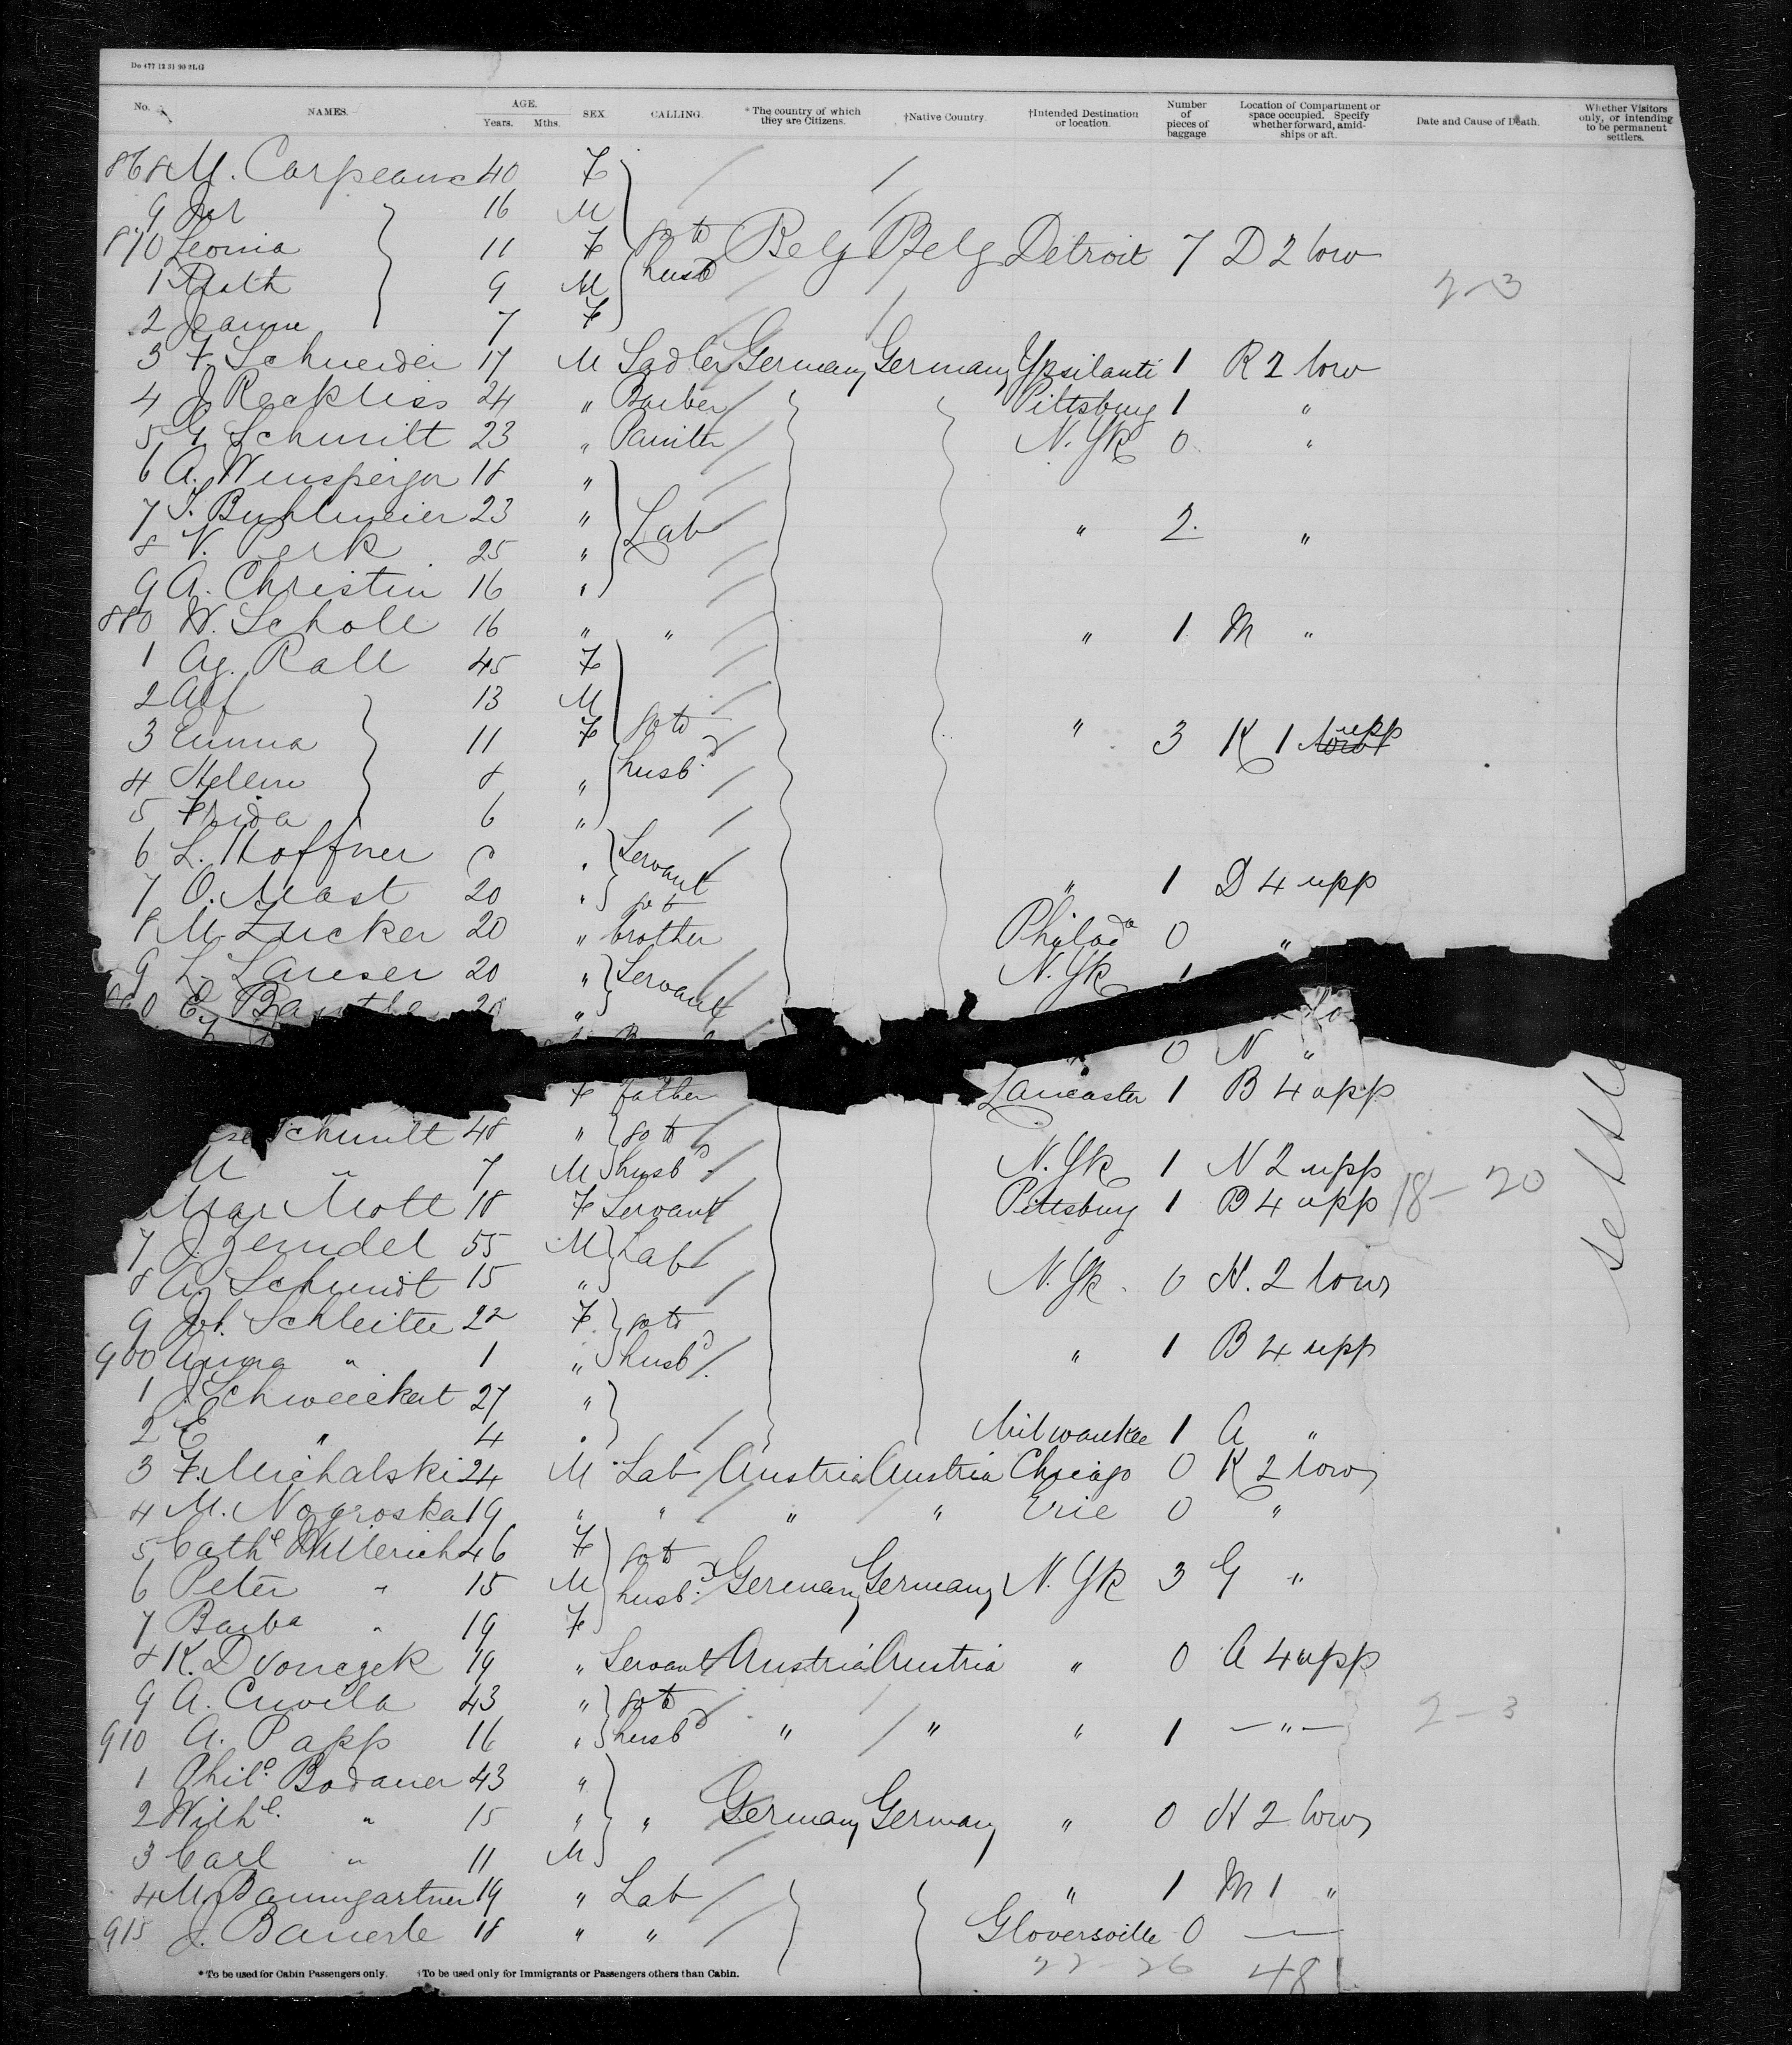 No. NAMES. AGE. Years. Mths. SEX. CALLING. * The country of which they are Citizens. †Native Country. †Intended Destination or location. Number of pieces of baggage Location of Compartment or space occupied. Specify whether forward, amid-ships or aft. Date and Cause of Death. Whether Visitors only, or intending to be permanent settlers.
868 M. 40 F
9 16 M
870 Leonia 11 F go to husbd Belg Belg Detroit 7 D 2 low
1 9 M
2 Jeanne 7 F
2-3
3 F. Schneider 17 M Sadler Germany Germany Ypsilanti 1 R 2 low
4 J. 24 " Barber Pittsburg 1 "
5 G. Schmitt 23 " Painter N. Yk 0 "
6 A. 18 "
7 F. Buhlmeier 23 " Lab " 2. "
8 N. 25 "
9 A. Christin 16 "
880 W. Scholl 16 " " " 1 M "
1 Ag. Rall 45 F
2 Alf 13 M
3 Emma 11 F go to husbd " 3 K 1 upp
4 Helene 8 "
5 Frida 6 "
6 L. Hoffner " Servant
7 O. Mast 20 " go to " 1 D 4 upp
8 M Zucker 20 " brother Philada 0 "
9 L. Lauser 20 " Servant N. Yk 1
890 E. 20 "
0 N "
F father Lancaster 1 B 4 upp
Schmitt 48 " go to
M " 7 M husbd N. Yk 1 N 2 upp
Mar Mott 18 F Servant Pittsburg 1 B 4 upp 18-20
7 J. Zemdel 55 M Lab
8 A. Schmidt 15 " N. Yk. 0 H. 2 low
9 Schleiter 22 F go to
900 Anna " 1 " husbd " 1 B 4 upp
1 J. Schweickert 27 "
2 E " 4 " Milwaukee 1 A "
3 F. Michalski 24 M Lab Austria Austria Chicago 0 K 2 low
4 M. Nogroska 19 " " " " Erie 0 "
5 Cathe 46 F go to
6 Peter " 15 M husbd Germany Germany N. Yk 3 G "
7 Barba " 19 F
8 K. Dvonczek 19 " Servant Austria Austria " 0 A 4 upp
9 A. 43 " go to
910 A. Papp 16 " husbd " " " 1 — " —
2-3
1 Phile Bodauer 43 "
2 Wilhe. " 15 " " Germany Germany " 0 H 2 low
3 Carl " 11 M
4 M. Baumgartner 19 " Lab " 1 M 1 "
915 J. Bauerle 18 " " Gloversville 0 —
22-26 48
* To be used for Cabin Passengers only. †To be used only for Immigrants or Passengers others than Cabin.